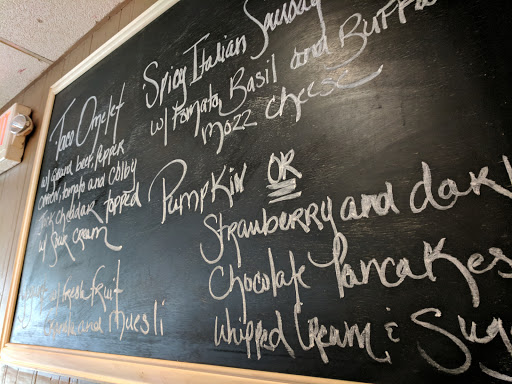 Taco Omelet
w/ ground beef, pepper
onion, tomato and Colby
Jack cheddar topped
w/ Sour cream
w/ fresh fruit
and muesli
Spicy Italian
w/ Tomato, Basil and Buffa
mozz cheese
Pumpkin OR
Strawberry and dark
Chocolate Pancakes
Whipped Cream & Sug